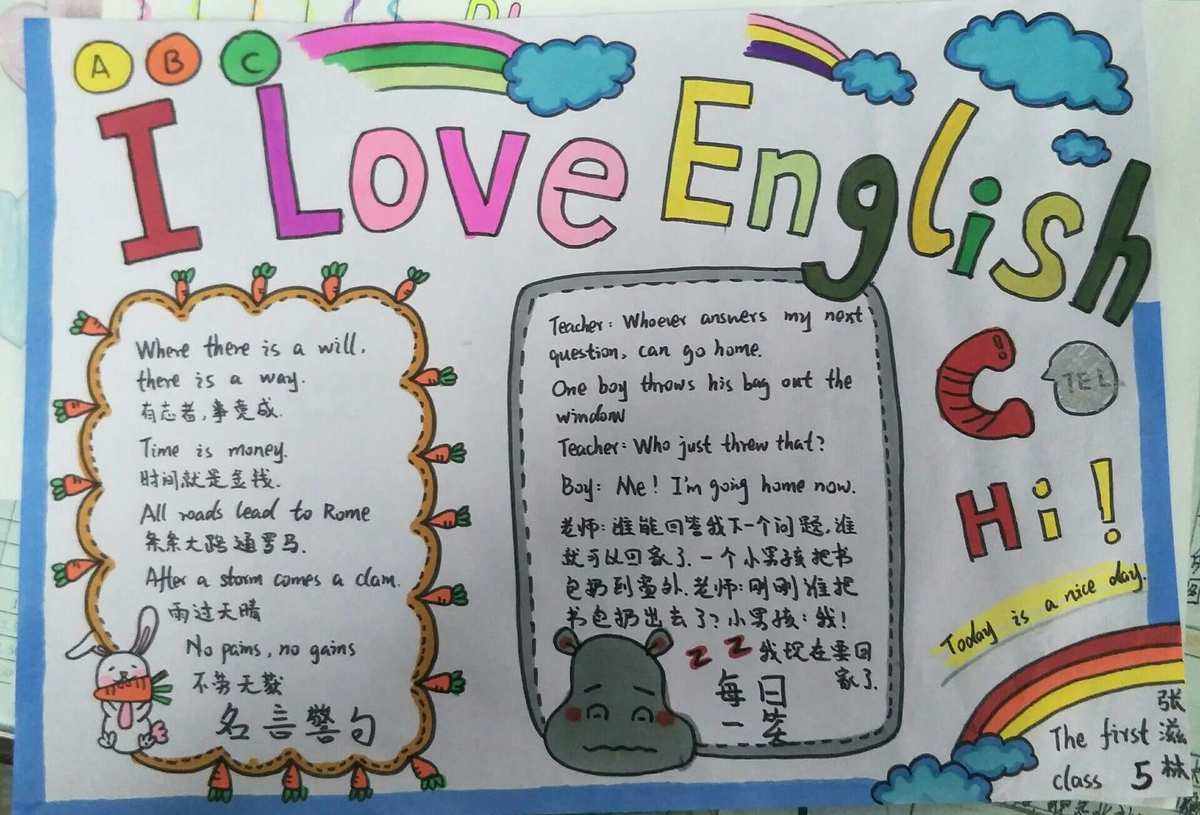 A B C
I Love English
Where there is a will,
there is a way.
有志者,事竟成.
Time is money.
时间就是金钱.
All roads lead to Rome
条条大路通罗马.
After a storm comes a clam.
雨过天晴
No pains, no gains
不劳无获
名言警句
Teacher: Whoever answers my next
question, can go home.
One boy throws his bag out the
window
Teacher: Who just threw that?
Boy: Me! I'm going home now.
老师:谁能回答我下一个问题,谁
就可以回家了.一个小男孩把书
包扔到窗外.老师:刚刚谁把
书包扔出去了?小男孩:我!
我现在要回
家了.
z z
每日
一笑
C
TEL
Hi!
Today is a nice day.
The first
class 5
张滋林